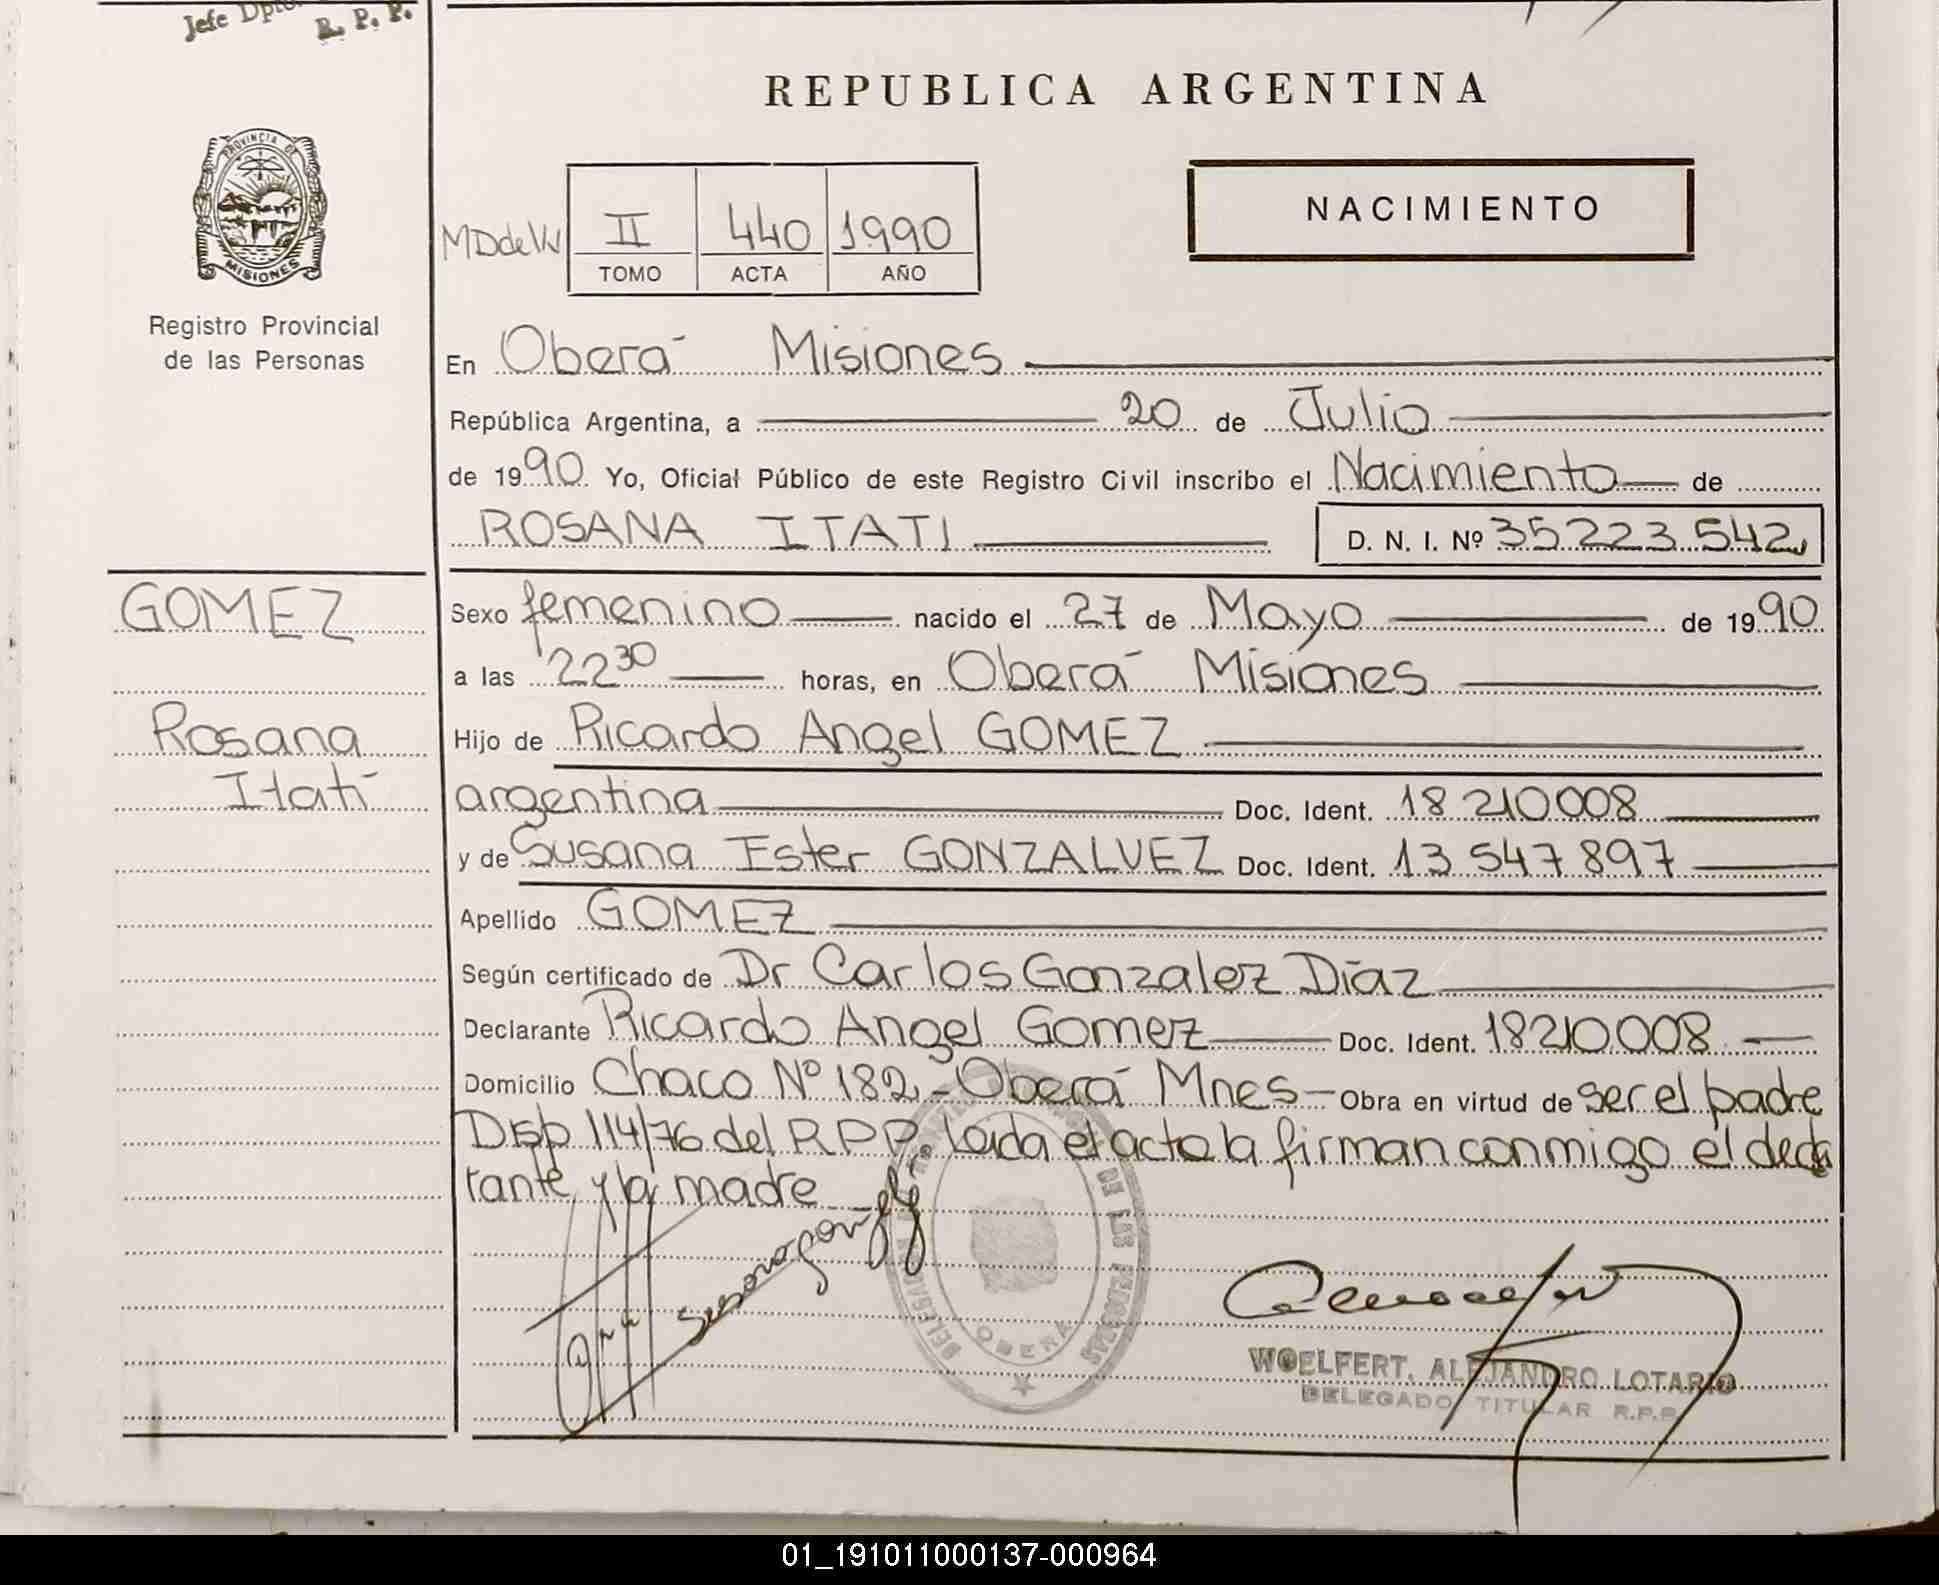 Jefe Dpto.
R. P. P.
REPUBLICA ARGENTINA
PROVINCIA DE
MISIONES
NACIMIENTO
II 440 1990
TOMO ACTA AÑO
Registro Provincial
de las Personas
En Oberá Misiones
República Argentina, a 20 de Julio
de 1990 Yo, Oficial Público de este Registro Civil inscribo el Nacimiento de
ROSANA ITATI D. N. I. Nº 35223542
GOMEZ
Rosana
Itatí
Sexo femenino nacido el 27 de Mayo de 1990
a las 22 30 horas, en Oberá Misiones
Hijo de Ricardo Angel GOMEZ
argentina Doc. Ident. 18210008
y de Susana Ester GONZALVEZ Doc. Ident. 13547897
Apellido GOMEZ
Según certificado de Dr Carlos Gonzalez Díaz
Declarante Ricardo Angel Gomez Doc. Ident. 18210008
Domicilio Chaco Nº 182 - Oberá Mnes - Obra en virtud de ser el padre
Disp 114/76 del R P P Leida el acta la firman conmigo el decla
rante y la madre
DE LAS PERSONAS
OBERA
WOELFERT, ALEJANDRO LOTARIO
DELEGADO TITULAR R.P.P.
01_191011000137-000964